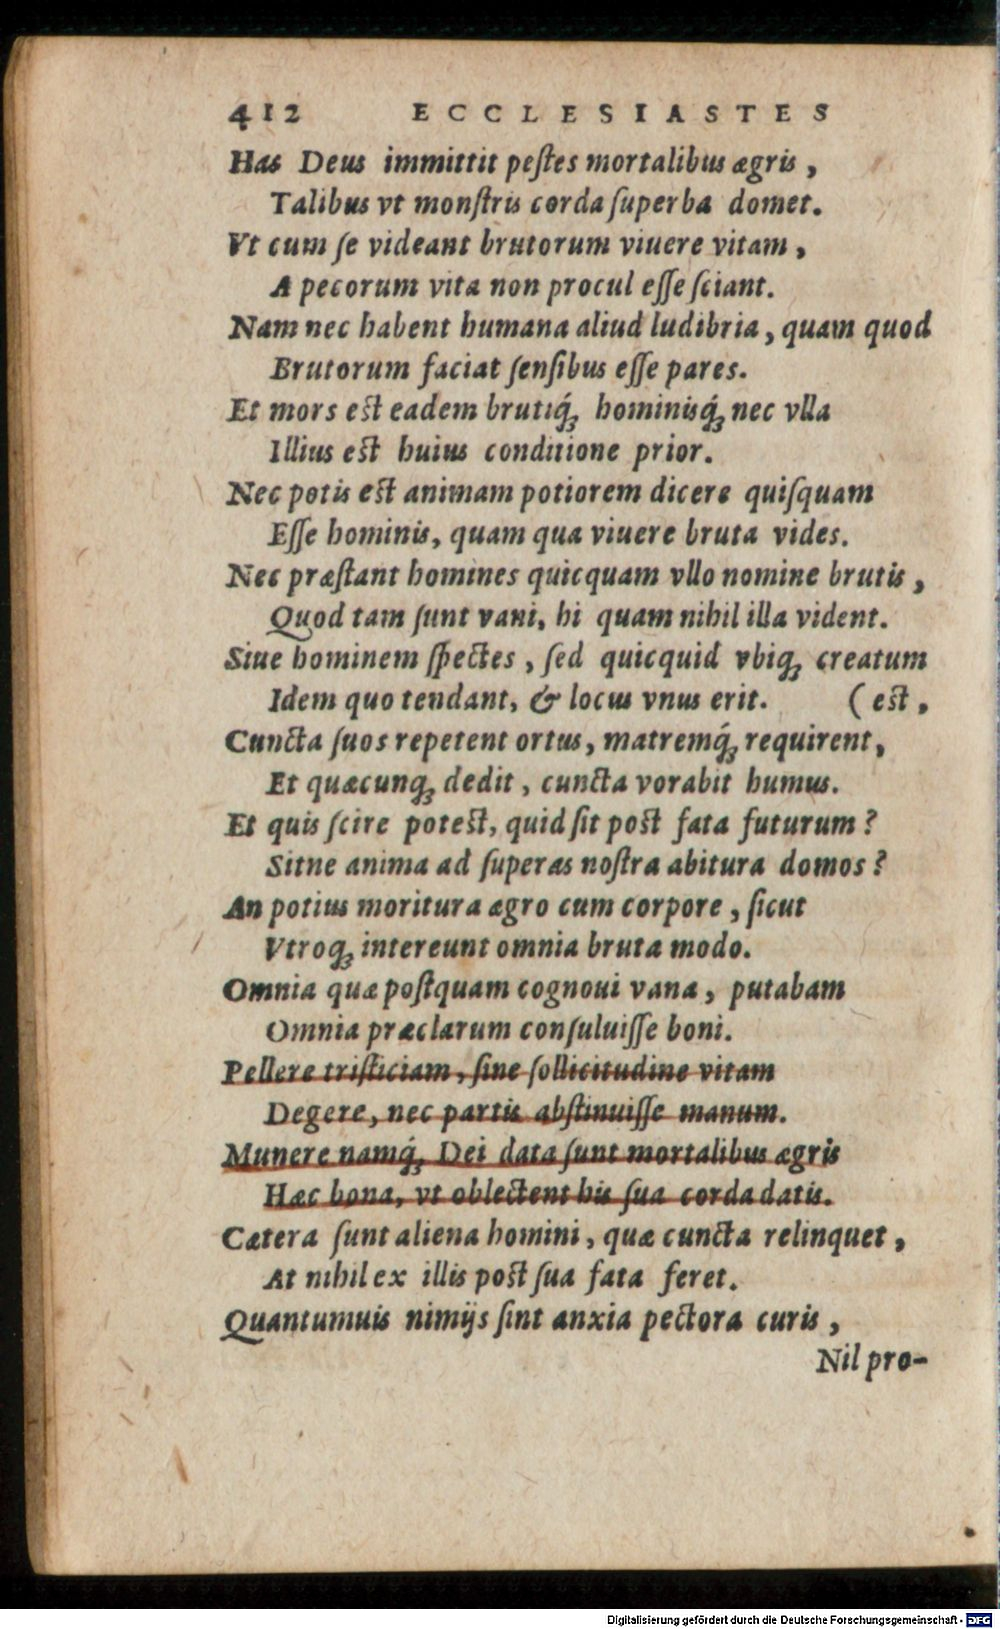 412 ECCLESIASTES
Has Deus immittit peſtes mortalibus ægris,
Talibus vt monſtris corda ſuperba domet.
Vt cum ſe videant brutorum viuere vitam,
A pecorum vita non procul eſſe ſciant.
Nam nec habent humana aliud ludibria, quam quod
Brutorum faciat ſenſibus eſſe pares.
Et mors eſt eadem brutiq́ꝫ hominisq́ꝫ nec vlla
Illius eſt huius conditione prior.
Nec potis eſt animam potiorem dicere quiſquam
Eſſe hominis, quam qua viuere bruta vides.
Nec præſtant homines quicquam vllo nomine brutis,
Quod tam ſunt vani, hi quam nihil illa vident.
Siue hominem ſpectes, ſed quicquid vbiqꝫ creatum
Idem quo tendant, & locus vnus erit. (eſt,
Cuncta ſuos repetent ortus, matremq́ꝫ requirent,
Et quæcunqꝫ dedit, cuncta vorabit humus.
Et quis ſcire poteſt, quid ſit poſt fata futurum?
Sitne anima ad ſuperas noſtra abitura domos?
An potius moritura ægro cum corpore, ſicut
Vtroqꝫ intereunt omnia bruta modo.
Omnia quæ poſtquam cognoui vana, putabam
Omnia præclarum conſuluiſſe boni.
Pellere triſticiam, ſine ſollicitudine vitam
Degere, nec partis abſtinuiſſe manum.
Munere namq́ꝫ Dei data ſunt mortalibus ægris
Hæc bona, vt oblectent his ſua corda datis.
Cætera ſunt aliena homini, quæ cuncta relinquet,
At nihil ex illis poſt ſua fata feret.
Quantumuis nimijs ſint anxia pectora curis,
Nil pro-
Digitalisierung gefördert durch die Deutsche Forschungsgemeinschaft - DFG